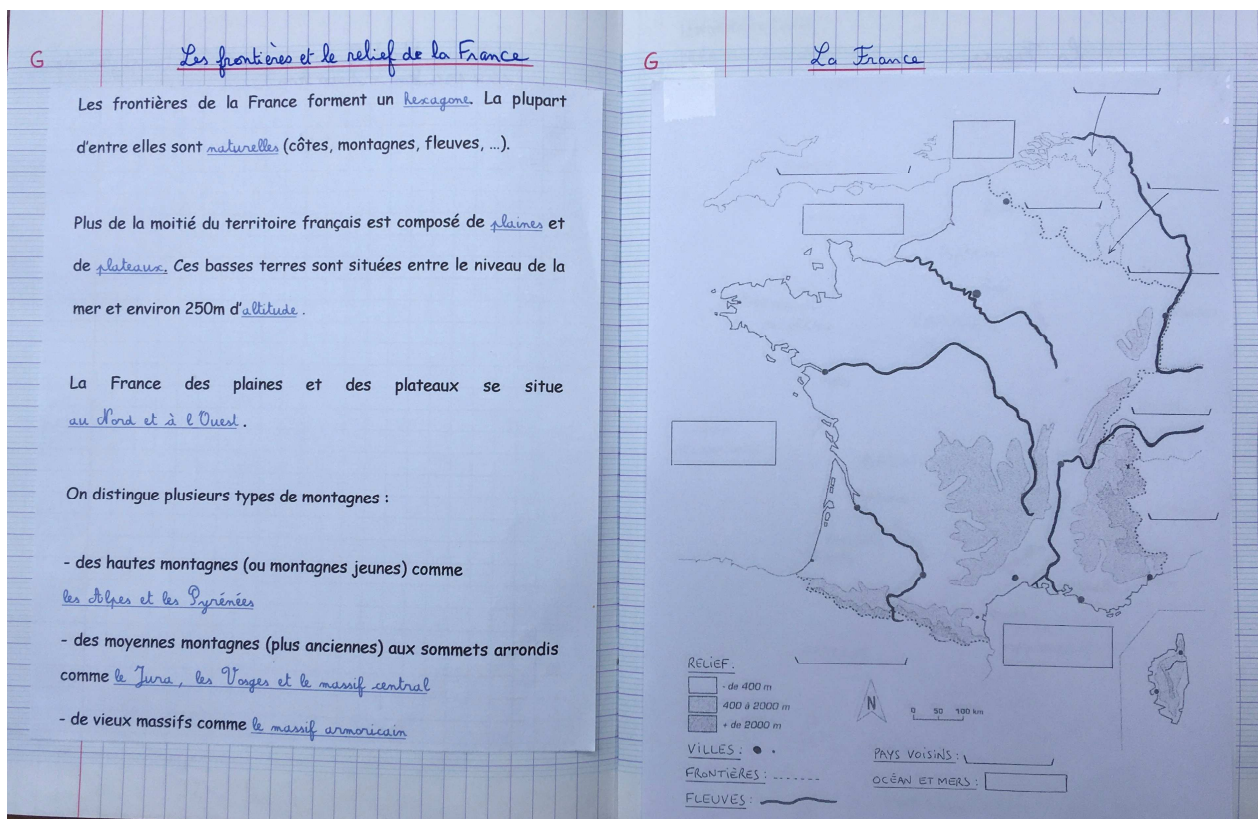 G
Les frontières et le relief de la France
Les frontières de la France forment un hexagone. La plupart
d'entre elles sont naturelles (côtes, montagnes, fleuves, ...).
Plus de la moitié du territoire français est composé de plaines et
de plateaux. Ces basses terres sont situées entre le niveau de la
mer et environ 250m d'altitude.
La France des plaines et des plateaux se situe
au Nord et à l'Ouest.
On distingue plusieurs types de montagnes :
- des hautes montagnes (ou montagnes jeunes) comme
les Alpes et les Pyrénées
- des moyennes montagnes (plus anciennes) aux sommets arrondis
comme le Jura, les Vosges et le massif central
- de vieux massifs comme le massif armoricain
G
La France
RELIEF.
- de 400 m
400 à 2000 m
+ de 2000 m
VILLES :
FRONTIÈRES :
FLEUVES :
N
0 50 100 km
PAYS VOISINS :
OCÉAN ET MERS :